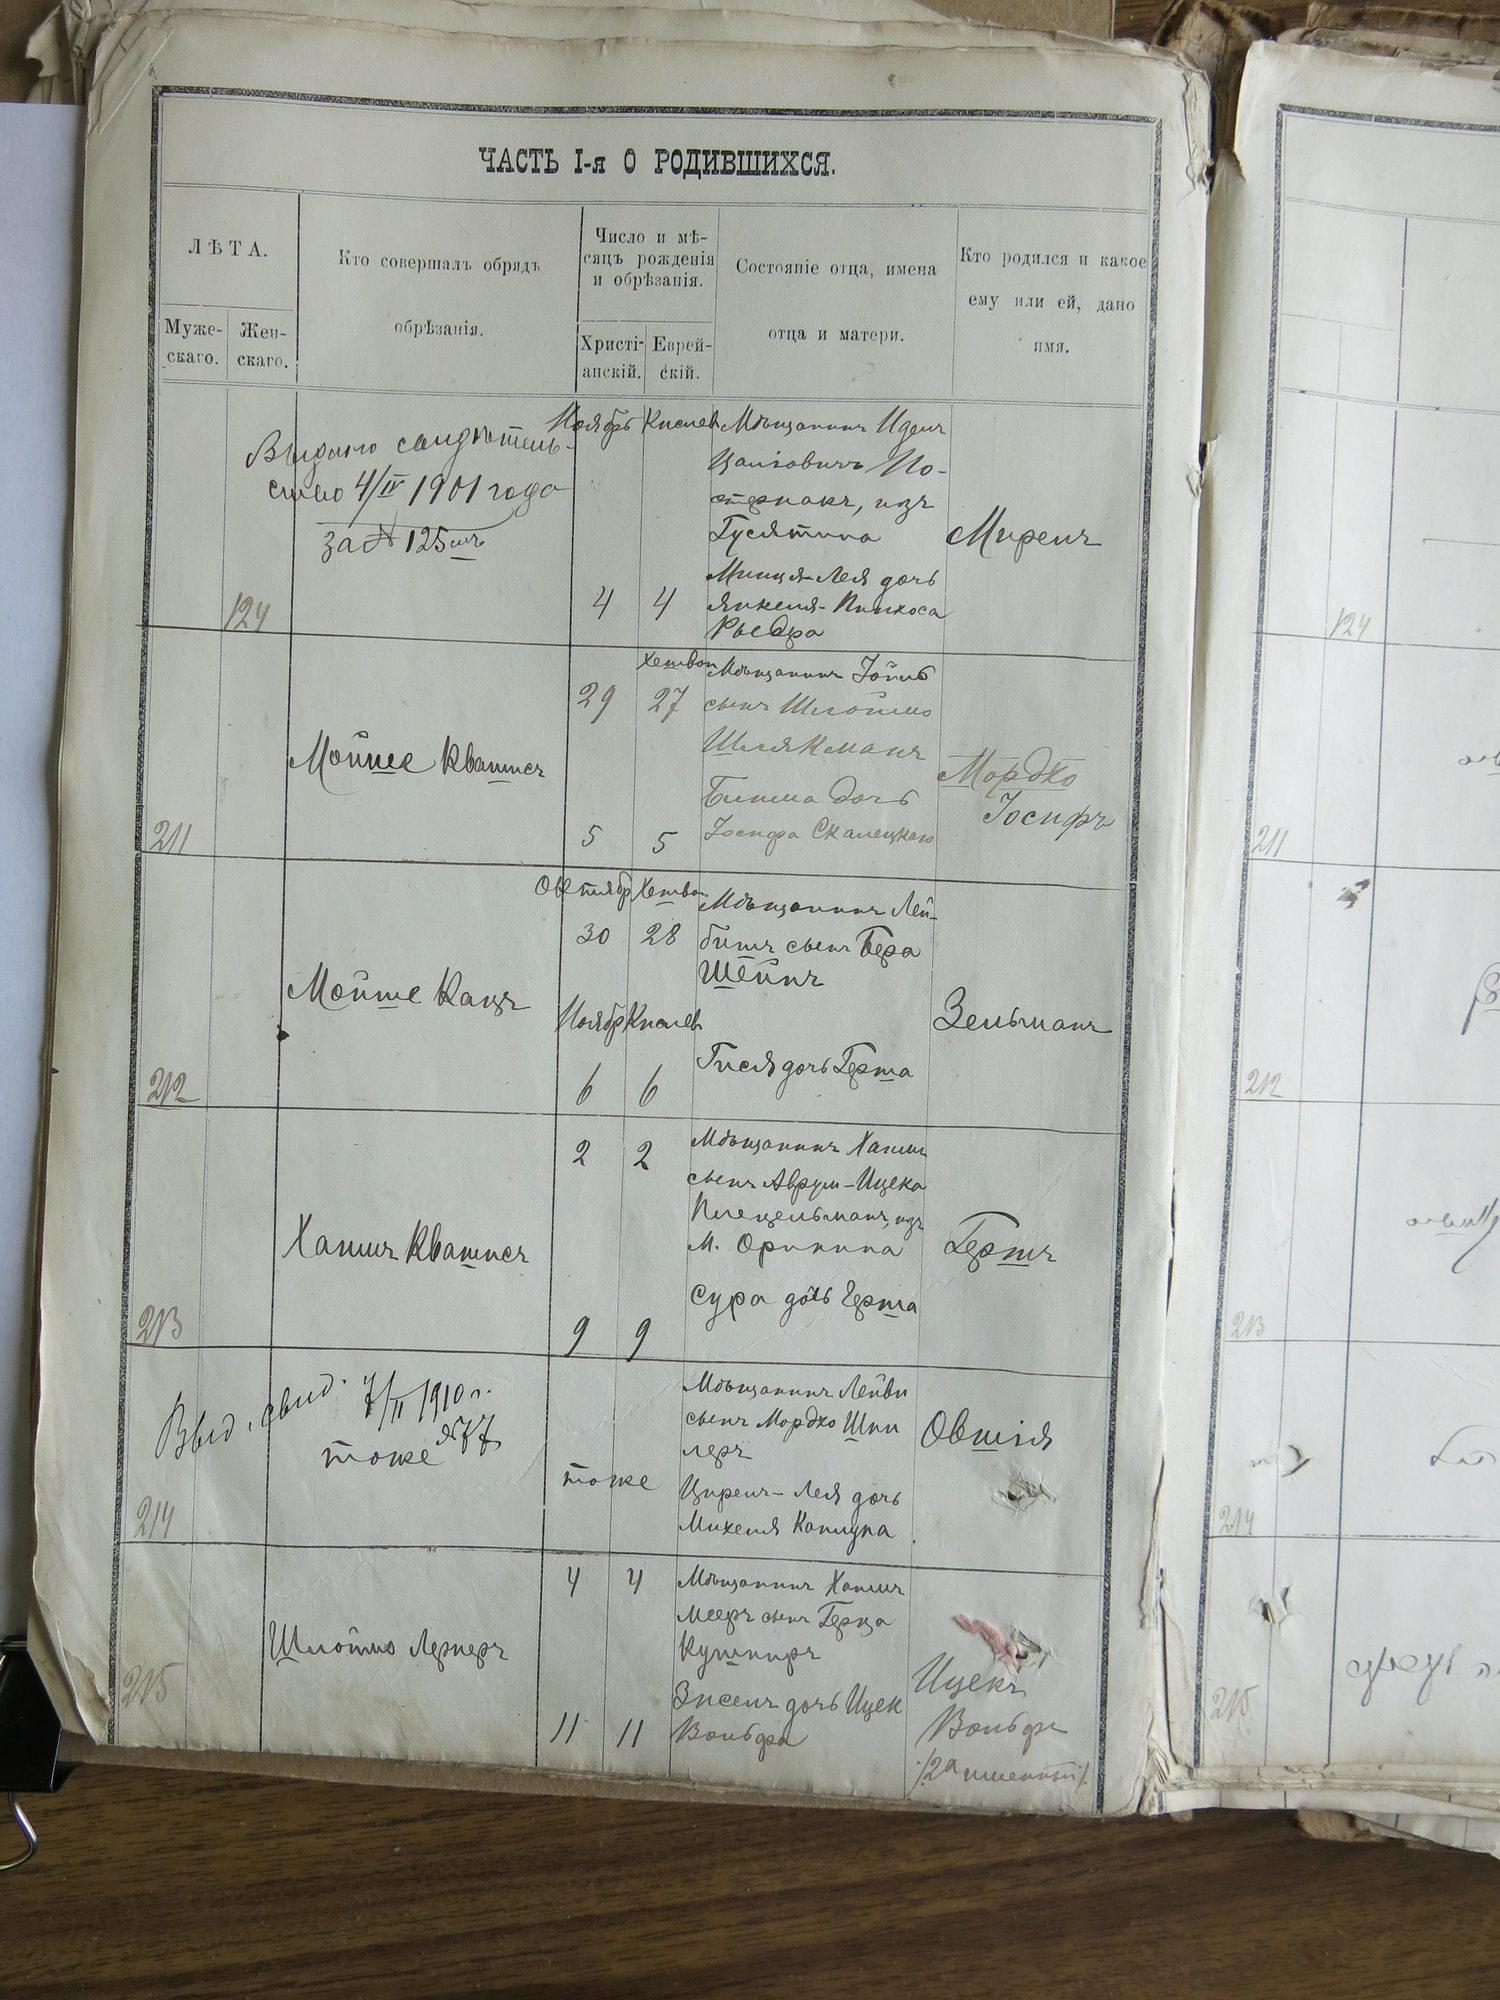 ЧАСТЬ I-я О РОДИВШИХСЯ.
ЛѢТА.
Муже-
скаго.
Жен-
скаго.
Кто совершалъ обрядъ
обрѣзанія.
Число и мѣ-
сяцъ рожденія
и обрѣзанія.
Христі-
анскій.
Еврей-
скій.
Состояніе отца, имена
отца и матери.
Кто родился и какое
ему или ей, дано
имя.
124
Выдано свидѣтель-
ство 4/IV 1901 года
за № 125
Ноябрь
Кислев
4
4
Мѣщанинъ
По-
стернакъ, изъ
Гусятина
Лея дочь
Янкеля-Пинхоса
Миремъ
211
Мойше Квашисъ
29
Хешван
27
5
5
Мѣщанинъ Іойль
сынъ Шлоймо
Шлякманъ
дочь
Іосифа Скалецкаго
Мордко
Іосифъ
212
Мойше Кацъ
Октябр
Хешван
30
28
Ноябр
Кислев
6
6
Мѣщанинъ Лей-
бишъ сынъ Бера
Шейнъ
Гися дочь Герша
Зельманъ
213
Хаимъ Квашисъ
2
2
9
9
Мѣщанинъ Хаимъ
сынъ Аврум-Ицека
Плецельманъ, изъ
м. Оринина
Сура дочь Герша
Гершъ
214
Выд. свид. 7/II 1910 г.
№ 77
тоже
тоже
Мѣщанинъ Лейви
сынъ Мордко Шпи
леръ
Циремъ-Лея дочь
Михеля
Овшія
215
Шлоймо Лернеръ
4
4
11
11
Мѣщанинъ Хаимъ
Мееръ сынъ Герца
Кушниръ
Энсемъ дочь Ицек
Вольфа
Ицекъ
Вольфъ